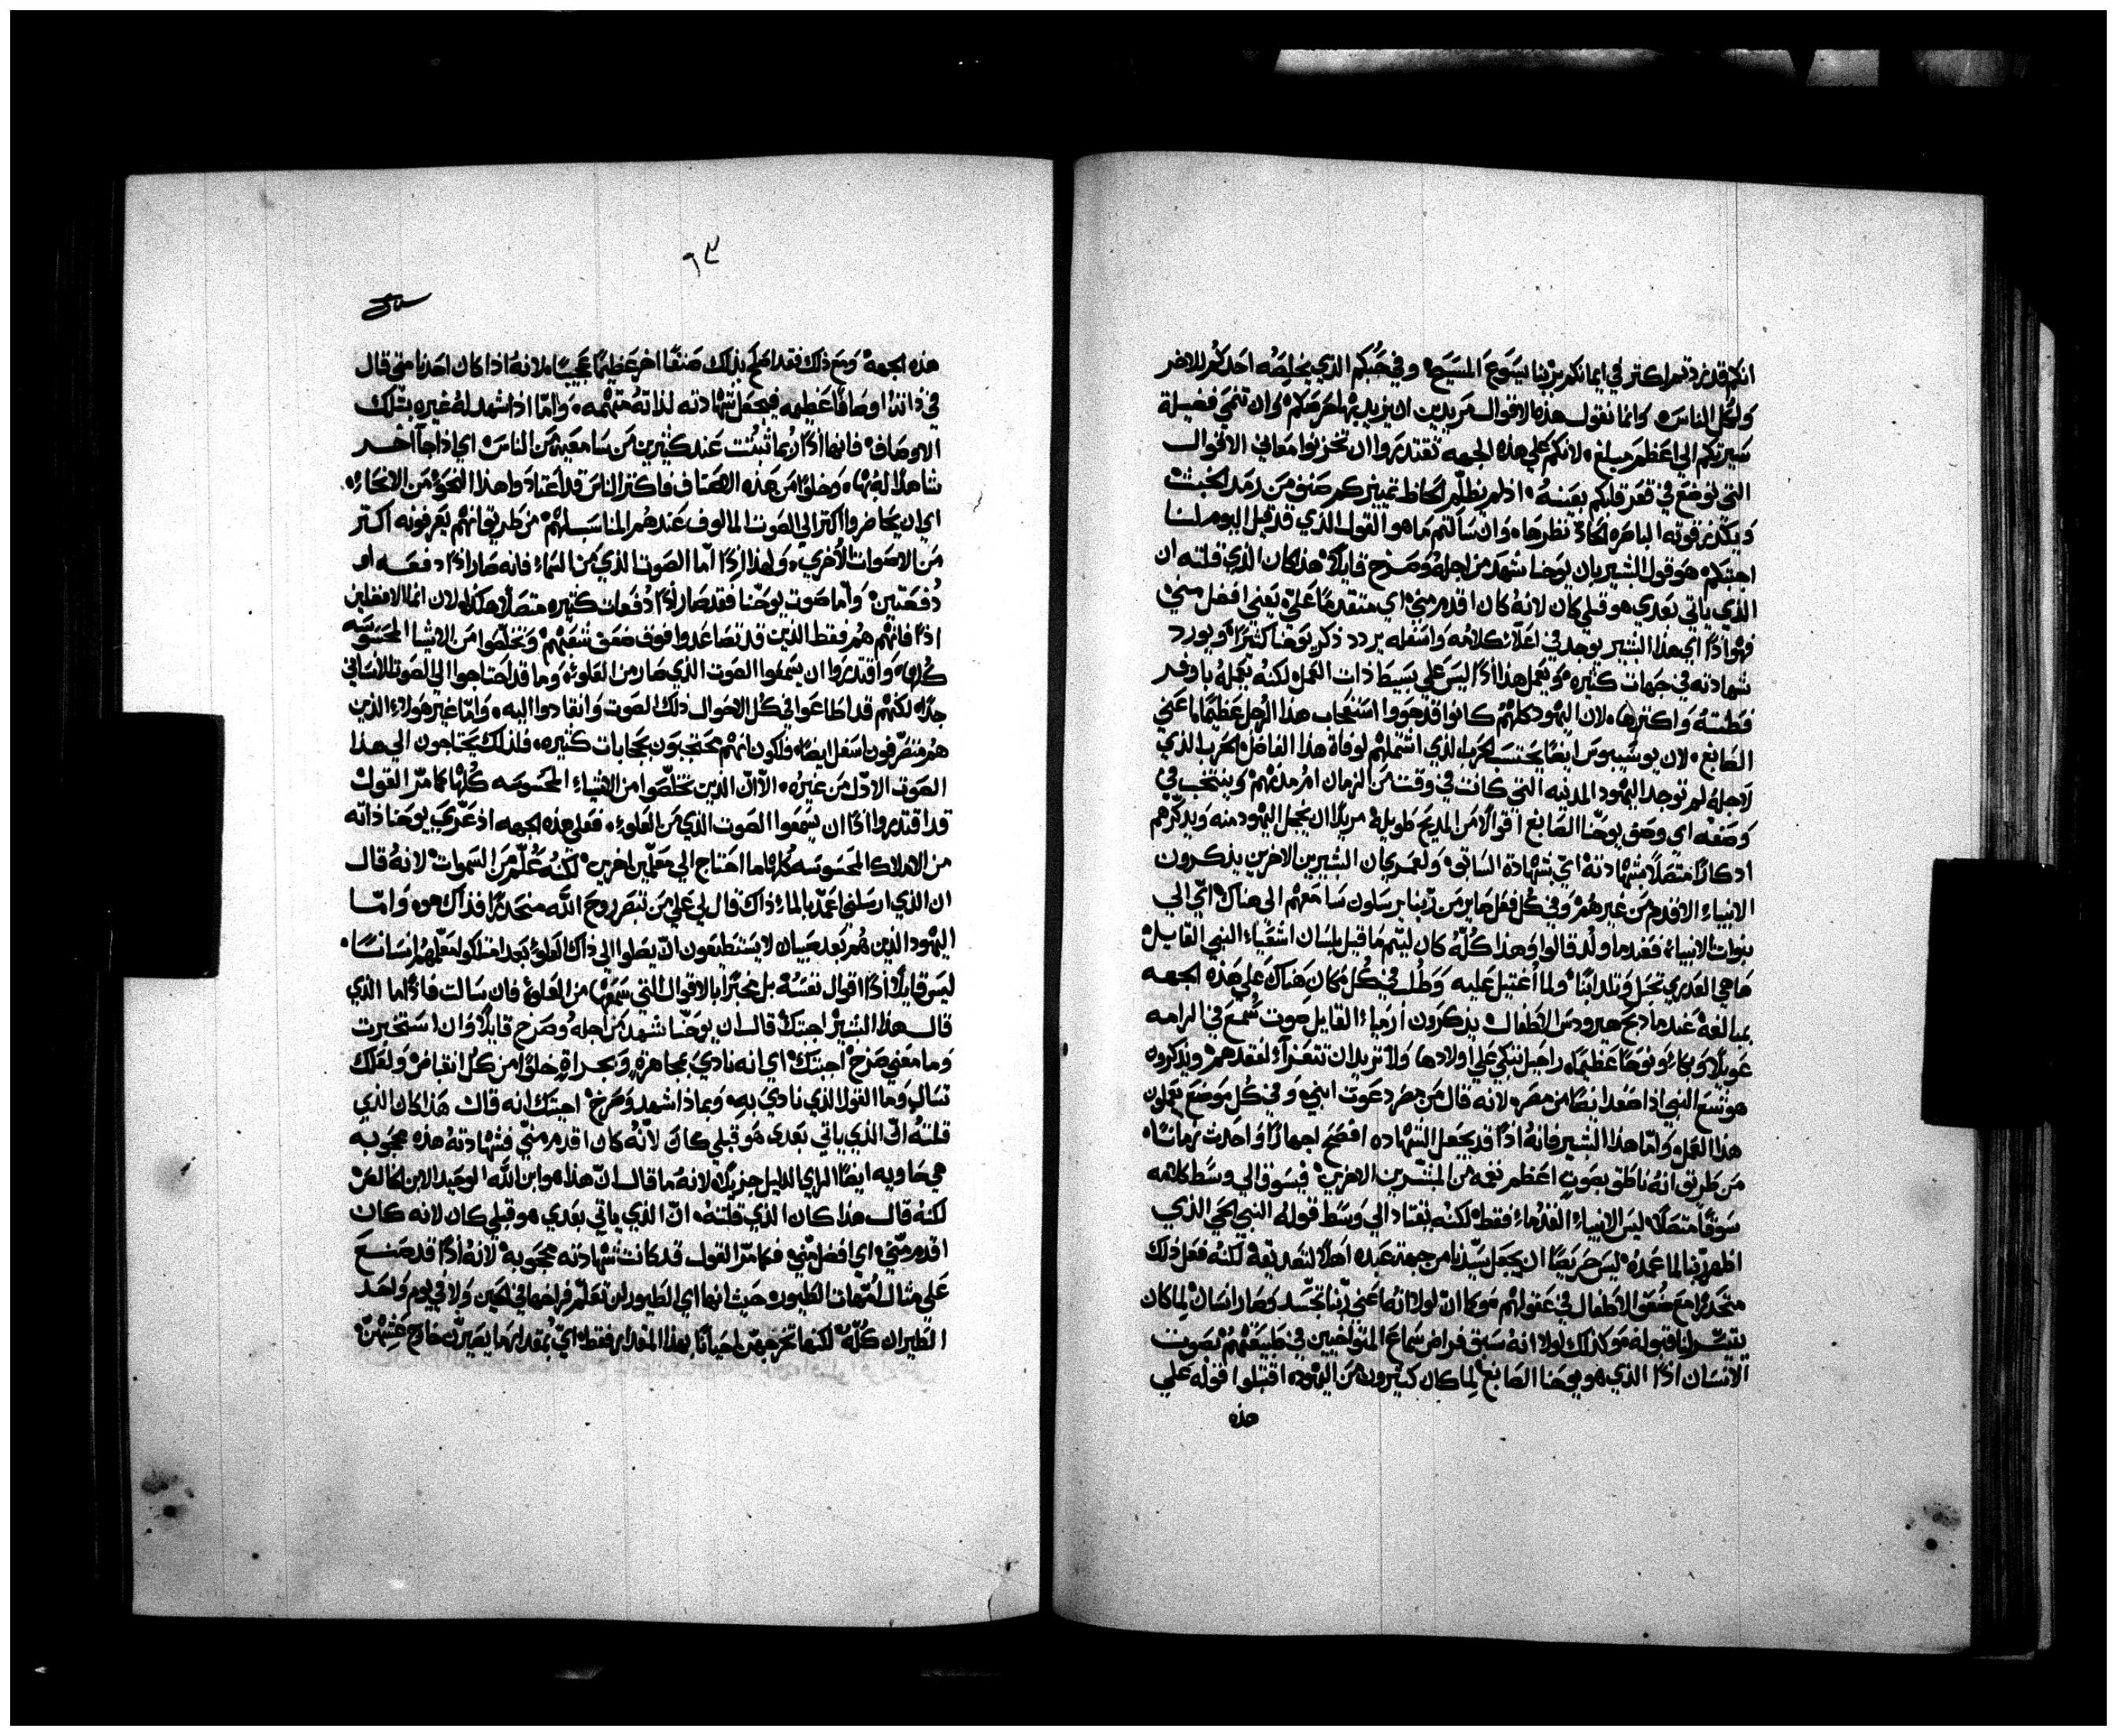 انكم قد زدتم اكتر في ايمانكم بربنا يسوع المسيح وفي حبكم الذي يخلصه احدكم للاخر
ولكل الناس وانما نقول هذه الاقوال مريدين ان يزيد بها حرصكم وان تنمى فضيلة
سيرتكم الي اعظم مبلغ لانكم علي هذه الجهه تقتدروا ان تخزنوا معاني الاقوال
التي توضع في قعر قلبكم بعينه اذ لم يظلم لحاظ تمييزكم صنف من رمد الخبث
ويكدر قوته الباصره الحاد نظرها وان سالتم ما هو القول الذي قد قيل اليوم لنا
اجبتكم هو قول البشير بان يوحنا شهد من اجله وصرخ قايلا هذا كان الذي قلته ان
الذي ياتي بعدي هو قبلي كان لانه كان اقدم مني اي متقدما علي يعني افضل مني
فهو اذا اي هذا البشير يوجد في اعلا كلامه واسفله يردد ذكر يوحنا كثيرا ويورد
شهادته في جهات كثيره ويعمل هذا اذا ليس علي بسيط ذات العمل لكنه يعمله باوفر
فطنته واكثرها لان اليهود كلهم كانوا قد هووا استعجاب هذا الرجل عظيما اعني
الصابغ لان يوسيبوس ايضا يحتسب الحرب الذي اشتملهم لوفاة هذا الفاضل الحرب الذي
لاجله لم توجد اليهود المدنيه التي كانت في وقت من الزمان ام مدنهم وينتخب في
وصفه اي وصف يوحنا الصابغ اقوالا من المديح طويله مريدا ان يخجل اليهود منه ويذكرهم
اذكارا متصلا بشهادته اي بشهادة السابق ولعمري ان البشيرين الاخرين يذكرون
الانبياء الاقدم من غيرهم وفي كل فعل صاير من ربنا يرسلون سامعهم الي هناك اي الي
نبوات الانبياء فعندما ولد قالوا وهذا كله كان ليتم ما قيل بلسان اشعياء النبي القايل
ها هي العذري تحبل وتلد ابنا ولما اغتيل عليه وطلب في كل مكان هناك علي هذه الجهه
بمبالغة عندما ذبح هيرودس الاطفال يذكرون ارمياء القايل صوت سمع في الرامه
عويلا وبكاء ونوحا عظيما راحيل تبكي علي اولادها ولا تريد ان تتعزاء لفقدهم ويذكروا
هوشع النبي اذا صعد ايضا من مصر لانه قال من مصر دعوت ابني وفي كل موضع يعملون
هذا العمل واما هذا البشير فانه اذا قد يجعل الشهاده افصح اجهارا واحدث زمانا
من طريق انه ناطق بصوت اعظم نغمه من المبشرين الاخرين فيسوق الي وسط كلامه
سوقا متصلا ليس الانبياء القدماء فقط لكنه يقتاد الي وسط قوله النبي الحي الذي
اظهر ربنا لما عمده ليس حريصا ان يجعل سيدنا من جهة عبده اهلا لتصديقه لكنه فعل ذلك
متحدرا مع ضعف الاطفال في عقولهم وكما ان لولا انه اعني ربنا تجسد وصار انسان لما كان
يتيسر لنا قبوله وكذلك لولا انه سبق فراض سماع المتواخيين في طبيعتهم بصوت
الانسان اذا الذي هو يوحنا الصابغ لما كان كثيرون من اليهود اقتبلوا قوله علي
هذه
٩٣
هذه الجهة ومع ذلك فقد اصلح بذلك صنفا اخر عظيما عجيبا لانه اذا كان احدنا متي قال
في ذاته اوصافا عظيمه فيجعل شهادته لذاته متهمه واما اذا شهد له غيره بتلك
الاوصاف فانها اذا ربما تثبتت عند كثيرين من سامعيه من الناس اي اذا جا اخر
شاهدا له بها وخلوا من هذه الاصناف فاكتر الناس قد اعتادوا هذا النحو من الانحاء
اي ان يحاضروا اكتر الي الصوت المالوف عندهم المناسب لهم من طريق انهم يعرفونه اكتر
من الاصوات الاخري ولهذا اذا اما الصوت الذي من السماء فانه صار اذا دفعه او
دفعتين واما صوت يوحنا فقد صار اذا دفعات كثيره متصلا هكذا لان انما الافضلين
اذا فانهم هم فقط الذين قد تصاعدوا فوق ضعف شعبهم وتخلصوا من الاشيا المحسوسه
كلها واقتدروا ان يسمعوا الصوت الذي صار من العلو وما قد احتاجوا الي الصوت الانساني
جدا لكنهم قد اطاعوا في كل الاحوال ذلك الصوت وانقادوا اليه واما غير هولاء الذين
هم متصرفون اسفل ايضا فلكون انهم محتجبون بحجابات كثيره فلذلك يحتاجون الي هذا
الصوت الادل من غيره الا ان الذين تخلصوا من الاشياء المحسوسه كلها كما مر القول
قد اقتدروا اذا ان يسمعوا الصوت الذي من العلو فعلي هذه الجهه اذ عري يوحنا ذاته
من الاملاك المحسوسه كلها ما احتاج الي معلمين اخرين لكنه علم من السموات لانه قال
ان الذي ارسلني اعمد بالماء ذاك قال لي علي من تبصر روح الله منحدرا فذاك هو واما
اليهود الذين هم بعد صبيان لا يستطيعون ان يصلوا الي ذاك العلو بعد امتلكوا معلمهم انسانا
ليس قايلا اذا اقوال نفسه بل مخبرا بالاقوال التي سمعها من العلو فان سالت فاذا ما الذي
قال هذا البشير اجبتك قال ان يوحنا شهد من اجله وصرخ قايلا وان استخبرت
وما معني صرخ اجبتك اي انه نادي بمجاهرة وبجراة خلوا من كل انقباض ولعلك
تسال وما القول الذي نادي به وبماذا شهد وصرخ اجبتك انه قال هذا كان الذي
قلته ان الذي ياتي بعدي هو قبلي كان لانه كان اقدم مني فشهادته هذه محجوبه
هي حاويه ايضا الراي الدليل جزيلا لانه ما قال ان هذا هو ابن الله الوحيد الابن الخالص
لكنه قال هذا كان الذي قلته ان الذي ياتي بعدي هو قبلي كان لانه كان
اقدم مني اي افضل مني فكما مر القول قد كانت شهادته محجوبة لانه اذا قد صنع
علي مثال امهات الطيور حيث انها اي الطيور لن تعلم فراخها في الحين ولا في يوم واحد
الطيران كله لكنها تخرجهن احيانا بهذا المقدار فقط اي بمقدار ما يصيرن خارج عشهن